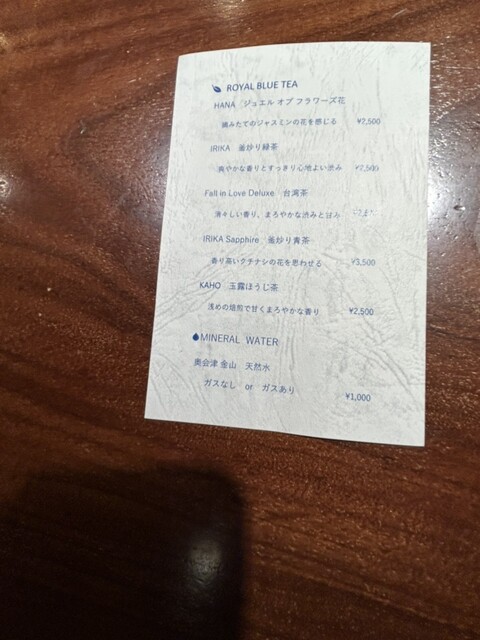 ROYAL BLUE TEA
HANA ジュエル オブ フラワーズ花
摘みたてのジャスミンの花を感じる ¥7,500
IRIKA 釜炒り緑茶
爽やかな香りとすっきり心地よい渋み
Fall in Love Deluxe 台湾茶
清々しい香り、まろやかな渋みと甘み
IRIKA Sapphire 釜炒り青茶
香り高いクチナシの花を思わせる ¥3,500
KAHO 玉露ほうじ茶
浅めの焙煎で甘くまろやかな香り ¥2,500
MINERAL WATER
奥会津 金山 天然水
ガスなし or ガスあり ¥1,000